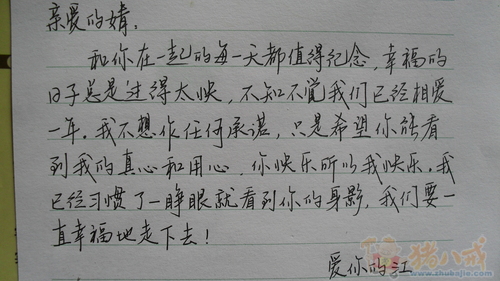 亲爱的婧,
和你在一起的每一天都值得纪念,幸福的
日子总是过得太快,不知不觉我们已经相爱
一年.我不想作任何承诺,只是希望你能看
到我的真心和用心,你快乐所以我快乐.我
已经习惯了一睁眼就看到你的身影,我们要一
直幸福地走下去!
爱你的江
猪八戒
www.zhubajie.com